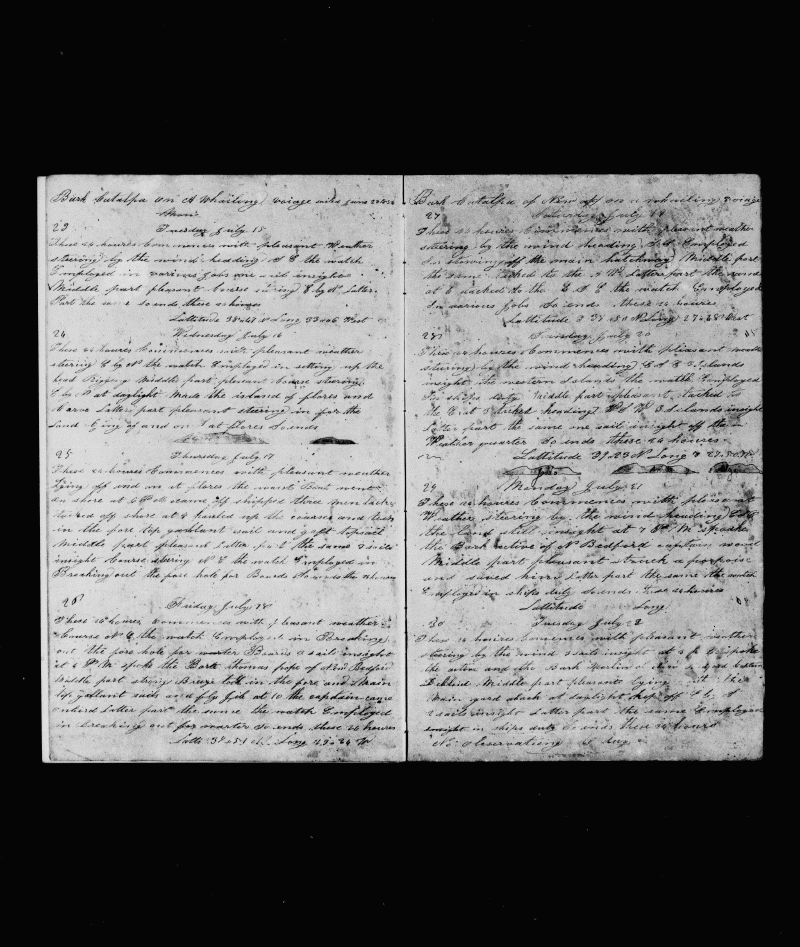 Bark Catalpa on A Whailing voiage
23
Tuesday July 15
These 24 houres Commences with pleasant Weather
steering by the wind heading N E the watch
Employed in varines Jobs one sail insight
Middle part pleasant Course stering E by N Latter
Part the same So ends these 24 houres
Lattitude 38=47 N Long 33=06 West
24
Wednesday July 16
These 24 houres Commences with pleasant weather
steering E by N the watch Employed in setting up the
head Rigging Middle part pleasant Course staring
E by N at daylight made the island of flores and
Corvo Latter part pleasant steering in for the
land Lying of and on at flores So ends
25
Thursday July 17
These 24 houres Commences with pleasant weather
Lying off and on at flores the waist Boat went
on shore at 6 P M came off shipped three men
off shore at 8 hauled up the coarses and
in the fore top gallant sail and gaft topsail
Middle part pleasant Latter part the same 2 sails
insight Course stering N E the watch Employed in
Breaking out the fore hole for Boards So ends the 24 houres
26
Friday July 18
These 24 houres Commences with pleasant weather
Course N E the watch Employed in Breaking
out the fore hole for warter Bearis a sail insight
at 6 P M spoke the Bark thomas pope of New Bedford
Middle part strong Breze took in the fore and Main
top gallant sails and fly Jib at 10 the captain came
onbord Latter part the same the watch Employed
in breaking out for warter So ends these 24 houres
Latti 38=51 N Long 29=24 W
Bark Catalpa of New off on a whailing Voiage
27
Saturday July 19
These 24 houres Commences with pleasant weather
steering by the wind heading Employed
in stowing off the main hatchway Middle part
the same tacked to the N W Latter part the wind
at E tacked to the E S E the watch Employed
in various Jobs So ends these 24 houres
Lattitude Long 27=48 West
28
Sunday July 20
These 24 houres Commences with pleasant weather
stering by the wind heading E S E 3 islands
insight the western islands the watch Employed
in ships duty Middle part pleasant tacked to
the E at 5 tacked heading W S W 3 islands insight
Latter part the same one sail insight off the
Weather quarter So ends these 24 houres
Lattitude 39=23 N Long
29
Monday July 21
These 24 houres Commences with pleasant
Weather steering by the wind heading
the land still insight at 7 P M spoake
the Bark active of N Bedford captain wood
Middle part pleasant struck a porpoise
and saved him Latter part the same the watch
Employed in ships duty So ends these 24 houres
Lattitude Long
30
Tuesday July 22
These 24 houres Comences with pleasant weather
stering by the wind 2 sails insight at spoke
the active and the Bark Merlin of
Middle part pleasant lying with the
Main yard aback at daylight kep off
2 sails insight Latter part the same Employed
insight in ships duty So ends these 24 houres
No observations to day